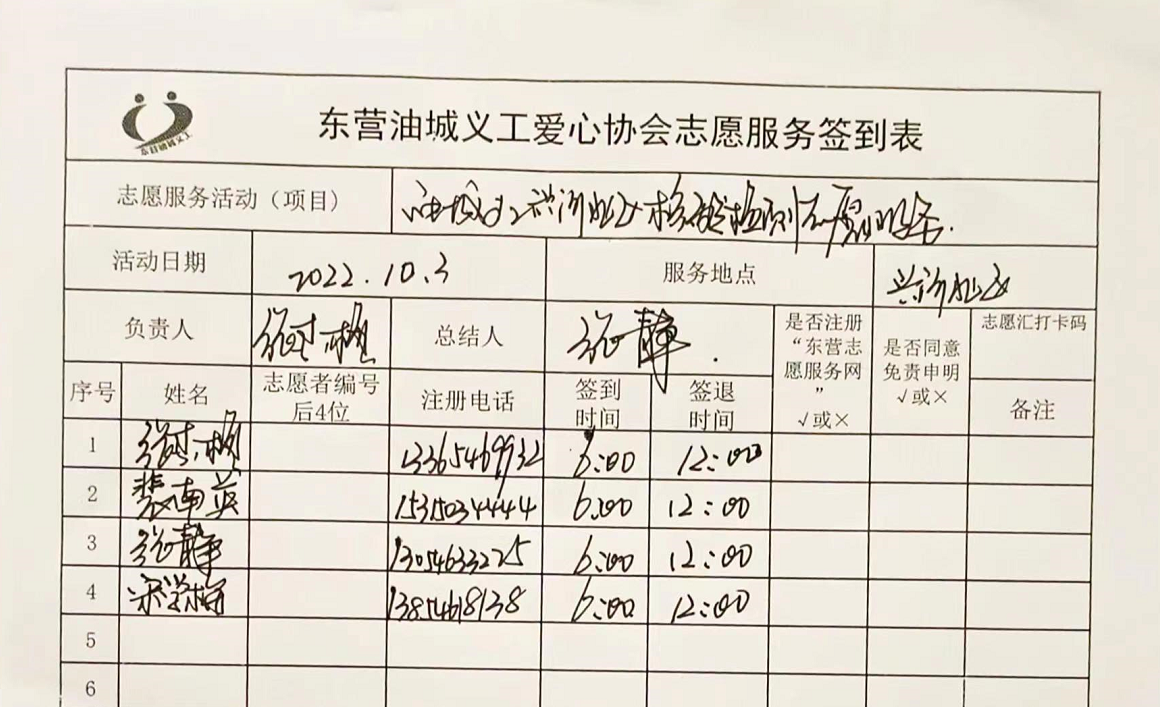 东营油城义工
东营油城义工爱心协会志愿服务签到表
志愿服务活动（项目） 油城义工兴浉社区核酸检测志愿服务.
活动日期 2022.10.3 服务地点 社区
负责人 总结人 张静. 是否注册“东营志愿服务网” √或× 是否同意免责申明 √或× 志愿汇打卡码
序号 姓名 志愿者编号后4位 注册电话 签到时间 签退时间 备注
1 13365469932 6:00 12:00
2 裴南英 15315034444 6:00 12:00
3 张静 13054633225 6:00 12:00
4 宋学梅 6:00 12:00
5
6